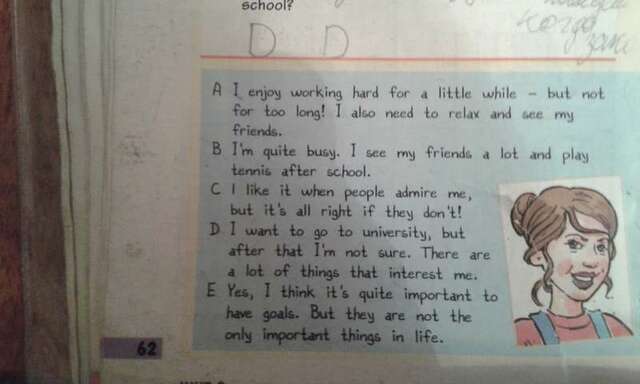 school?
D D
когда
A I enjoy working hard for a little while – but not
for too long! I also need to relax and see my
friends.
B I'm quite busy. I see my friends a lot and play
tennis after school.
C I like it when people admire me,
but it's all right if they don't!
D I want to go to university, but
after that I'm not sure. There are
a lot of things that interest me.
E Yes, I think it's quite important to
have goals. But they are not the
only important things in life.
62